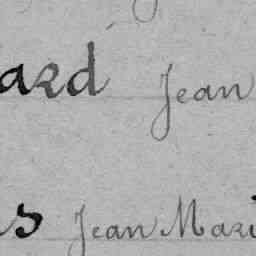 ard Jean
s Jean Mari